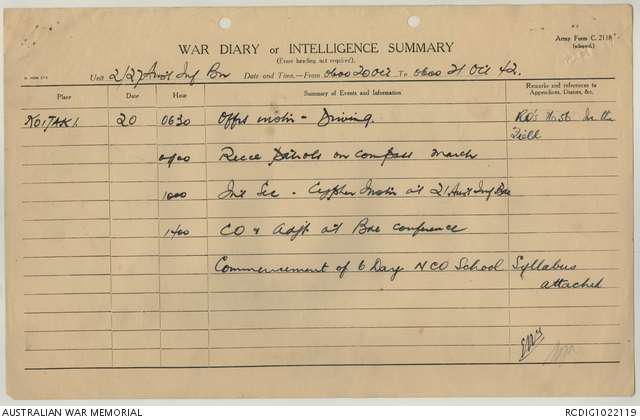 Army Form C. 2118
WAR DIARY or INTELLIGENCE SUMMARY
(Erase heading not required).
Unit 2/27 Aust Inf Bn Date and Time.—From 0600 20 Oct To 0600 21 Oct 42.
Place Date Hour Summary of Events and Information Remarks and references to Appendices, Diaries, &c.
KOITAKI. 20 0630 Offrs instn - Driving. RO's No 56 In the Field
0900 Recce Patrols on compass march
1000 Int Sec - Cypher Instn at 21 Aust Inf Bde
1400 CO & Adjt at Bde conference
Commencement of 6 Day NCO School Syllabus attached
AUSTRALIAN WAR MEMORIAL
RCDIG1022119